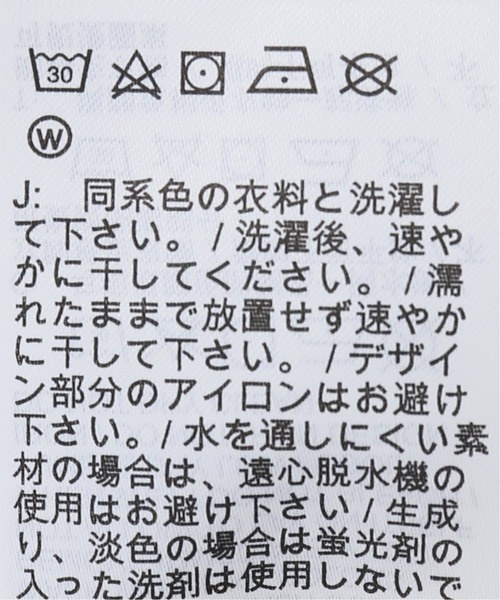 30
W
J:　同系色の衣料と洗濯し
て下さい。/洗濯後、速や
かに干してください。/濡
れたままで放置せず速やか
に干して下さい。/デザイ
ン部分のアイロンはお避け
下さい。/水を通しにくい素
材の場合は、遠心脱水機の
使用はお避け下さい/生成
り、淡色の場合は蛍光剤の
入った洗剤は使用しないで